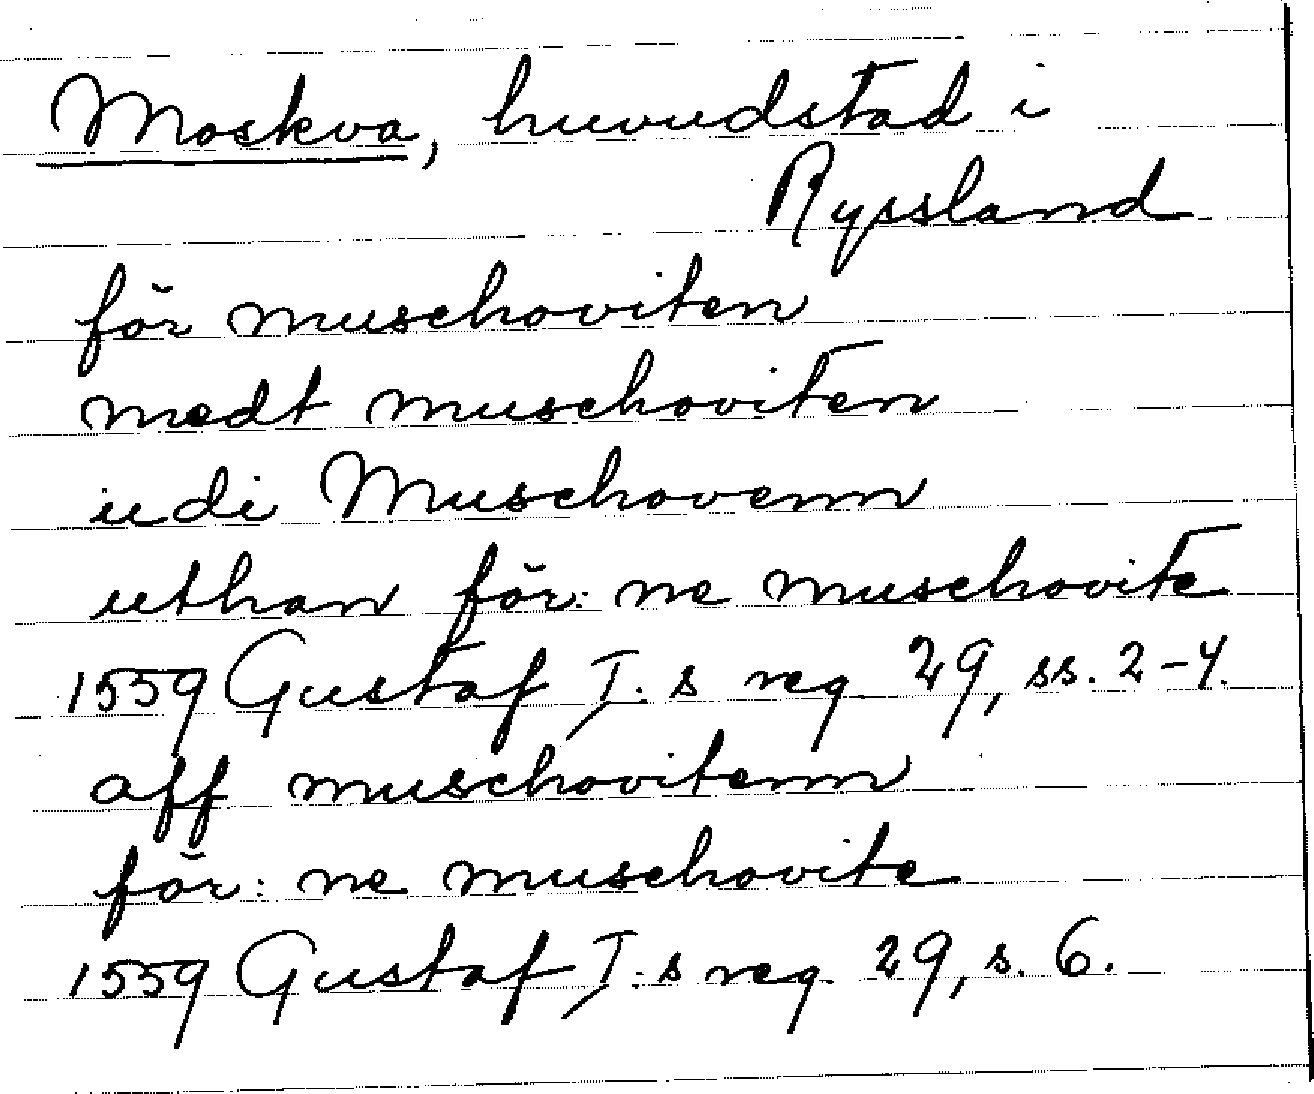 Moskva, huvudstad i
Ryssland
för muschoviten
medt muschoviten
udi Muschovenn
uthan för: ne muschovite
1559 Gustaf I:s reg. 29, ss. 2-4.
aff muschovitenn
för: ne muschovite
1559 Gustaf I:s reg. 29, s. 6.